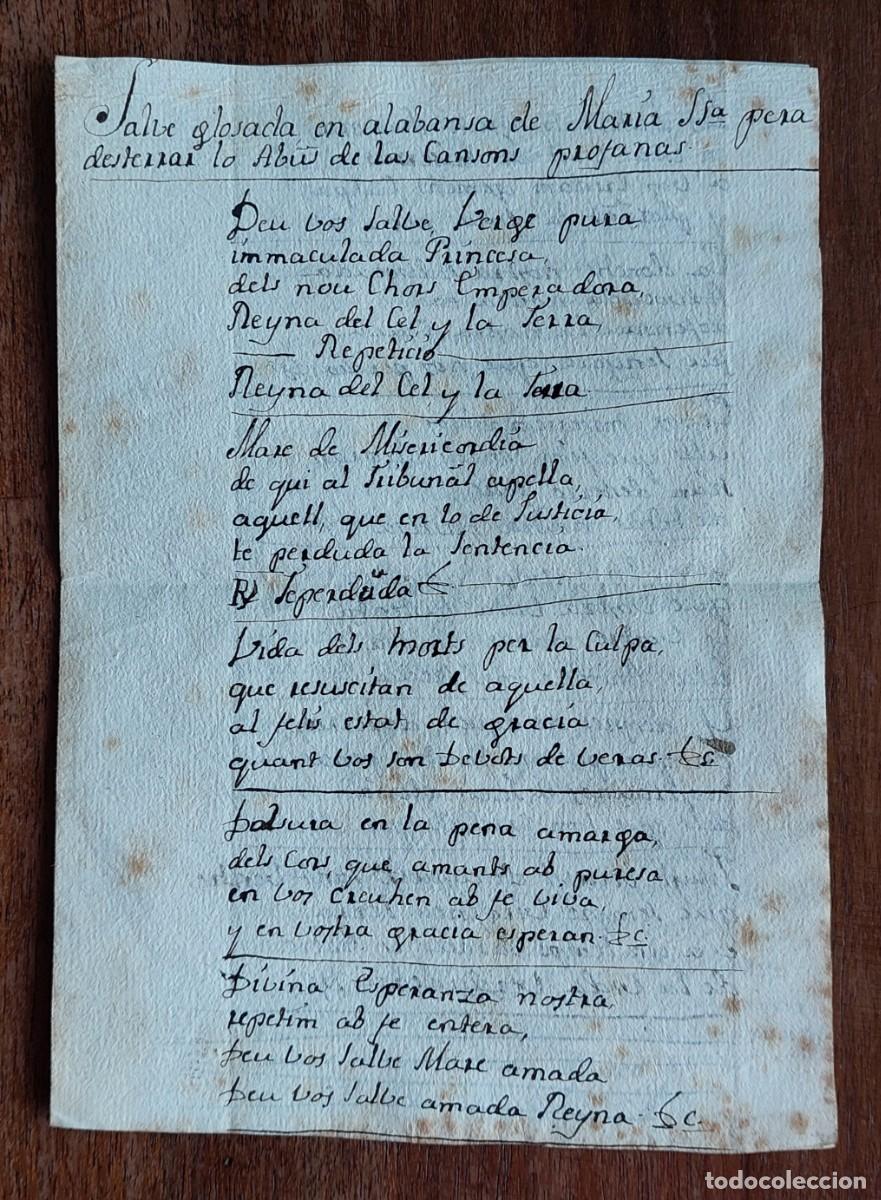 Salve glosada en alabansa de María SSa. pera
desterrar lo Abús de las Cansons profanas.
Deu vos Salve, Verge pura
immaculada Princesa,
dels nou Chors Emperadora,
Reyna del Cel y la Terra,
Repetició
Reyna del Cel y la Terra
Mare de Misericordia
de qui al Tribunal apella,
aquell, que en lo de Justicia,
te perduda la Sentencia.
R/ Te perduda &c
Vida dels Morts per la Culpa,
que resuscitan de aquella,
al felis estat de gracia
quant vos son Devots de veras. &c
Dolsura en la pena amarga,
dels Cors, que amants ab puresa
en vos creuhen ab fe viva,
y en vostra gracia esperan. &c
Divina Esperanza nostra,
repetim ab fe entera,
Deu vos Salve Mare amada
Deu vos Salve amada Reyna. &c.
todocoleccion